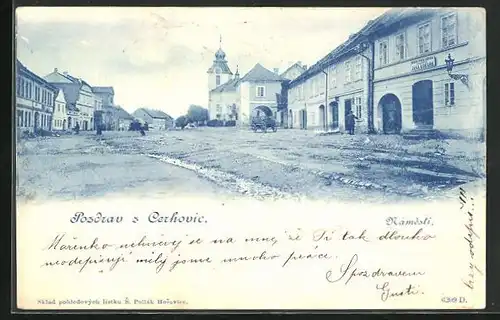 Pozdrav z Cerhovic.
Náměstí.
Mařenko nehněvej se na mnej, že Ti tak dlouho
neodepisuji měly jsme mnoho práce.
S pozdravem
Gusti.
brzy odepiš.
Sklad pohledových lístku R. Pollák Hořovice.
6209 D.